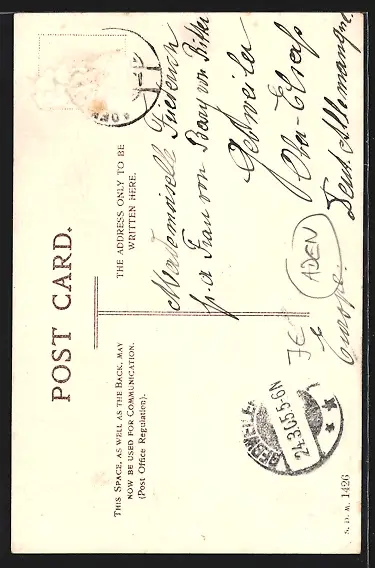 POST CARD.
THIS SPACE, AS WELL AS THE BACK, MAY
NOW BE USED FOR COMMUNICATION.
(Post Office Regulation).
THE ADDRESS ONLY TO BE
WRITTEN HERE.
Mademoiselle
p. a Frau von
Gebweiler
Ober-Elsass
Deutsch
Europe.
ADEN
24.3.05.5-6N
S. D. M. 1426